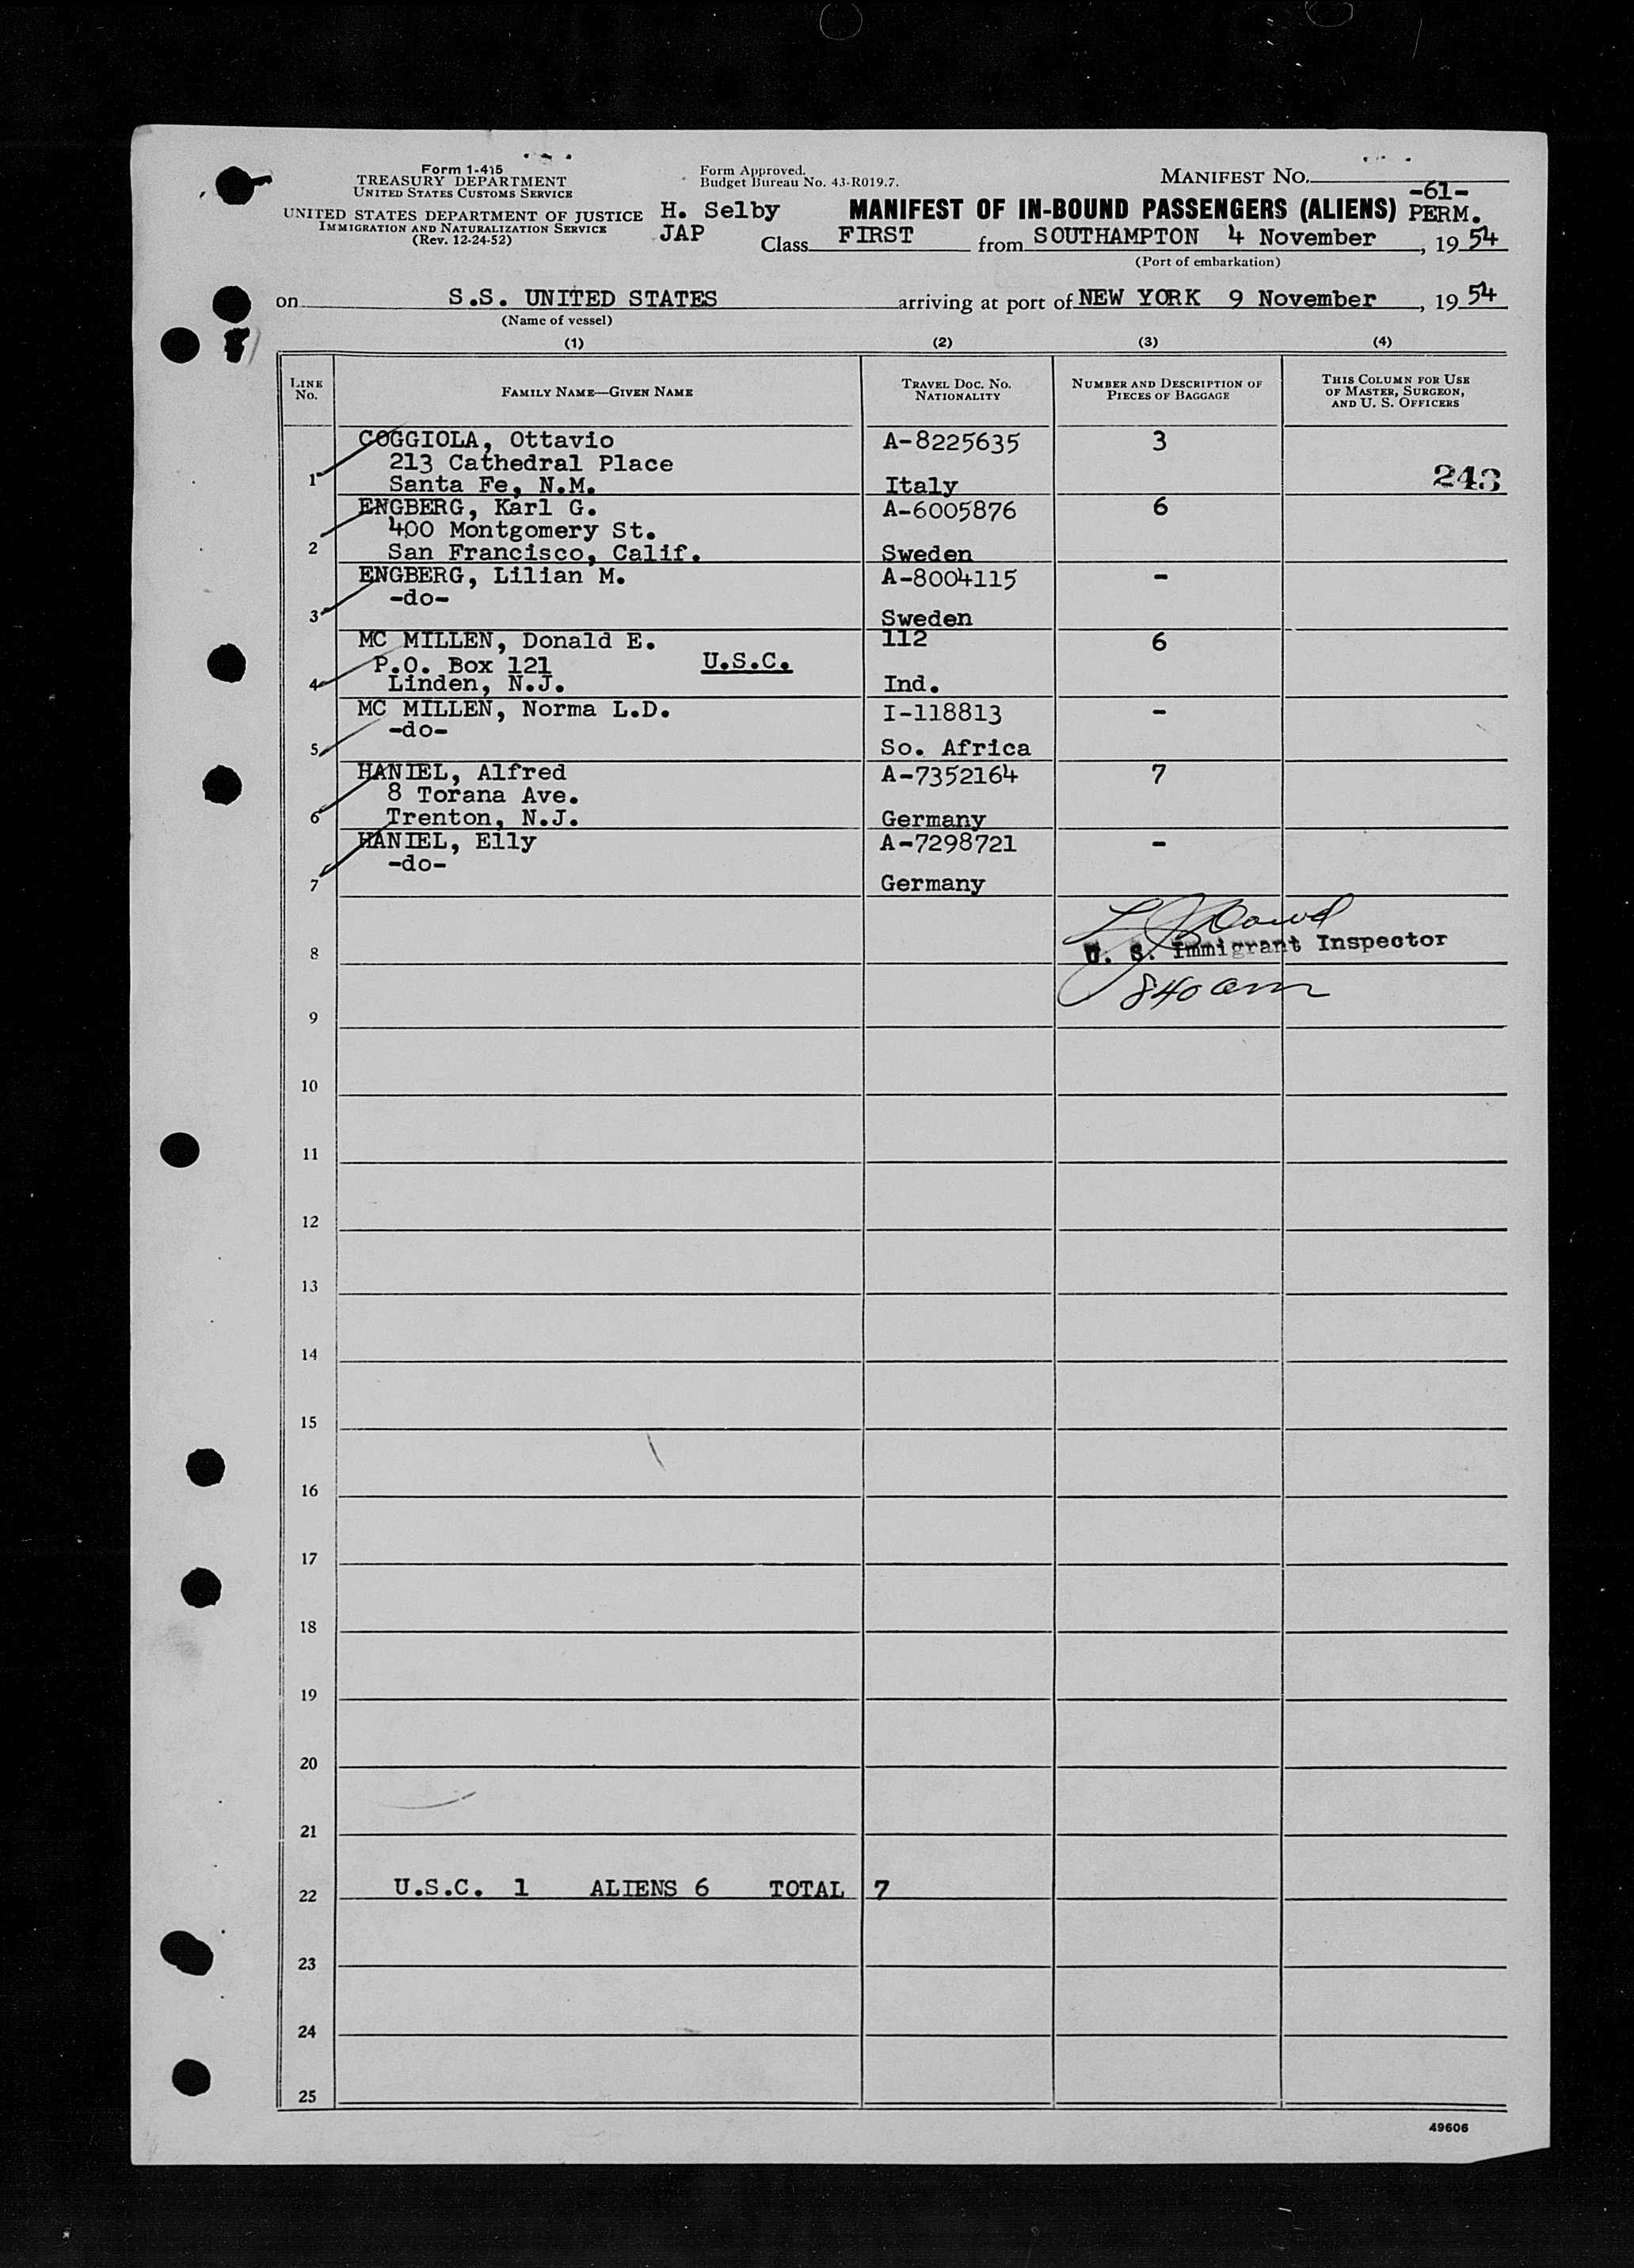 Form 1-415
TREASURY DEPARTMENT
UNITED STATES CUSTOMS SERVICE
UNITED STATES DEPARTMENT OF JUSTICE
IMMIGRATION AND NATURALIZATION SERVICE
(Rev. 12-24-52)
Form Approved.
Budget Bureau No. 43-R019.7.
MANIFEST No.
-61-
H. Selby MANIFEST OF IN-BOUND PASSENGERS (ALIENS) PERM.
JAP Class FIRST from SOUTHAMPTON 4 November, 19 54
(Port of embarkation)
on S.S. UNITED STATES arriving at port of NEW YORK 9 November, 19 54
(Name of vessel)
(1) (2) (3) (4)
LINE No. FAMILY NAME—GIVEN NAME TRAVEL DOC. NO. NATIONALITY NUMBER AND DESCRIPTION OF PIECES OF BAGGAGE THIS COLUMN FOR USE OF MASTER, SURGEON, AND U. S. OFFICERS
COGGIOLA, Ottavio A-8225635 3
213 Cathedral Place
1 Santa Fe, N.M. Italy 243
ENGBERG, Karl G. A-6005876 6
400 Montgomery St.
2 San Francisco, Calif. Sweden
ENGBERG, Lilian M. A-8004115 -
-do-
3 Sweden
MC MILLEN, Donald E. 112 6
P.O. Box 121 U.S.C.
4 Linden, N.J. Ind.
MC MILLEN, Norma L.D. I-118813 -
-do-
5 So. Africa
HANIEL, Alfred A-7352164 7
8 Torana Ave.
6 Trenton, N.J. Germany
HANIEL, Elly A-7298721 -
-do-
7 Germany
8 U. S. Immigrant Inspector
840 am
9
10
11
12
13
14
15
16
17
18
19
20
21
22 U.S.C. 1 ALIENS 6 TOTAL 7
23
24
25
49606